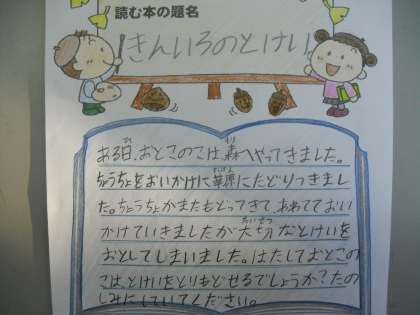 読む本の題名
きんいろのとけい
ある日、おとこのこは森へやってきました。
ちょうちょをおいかけに草原にたどりつきまし
た。ちょうちょがまたもどってきて、あわてておい
かけていきましたが大切なとけいを
おとしてしまいました。はたしておとこの
こは、とけいをとりもどせるでしょうか？たの
しみにしていてください。